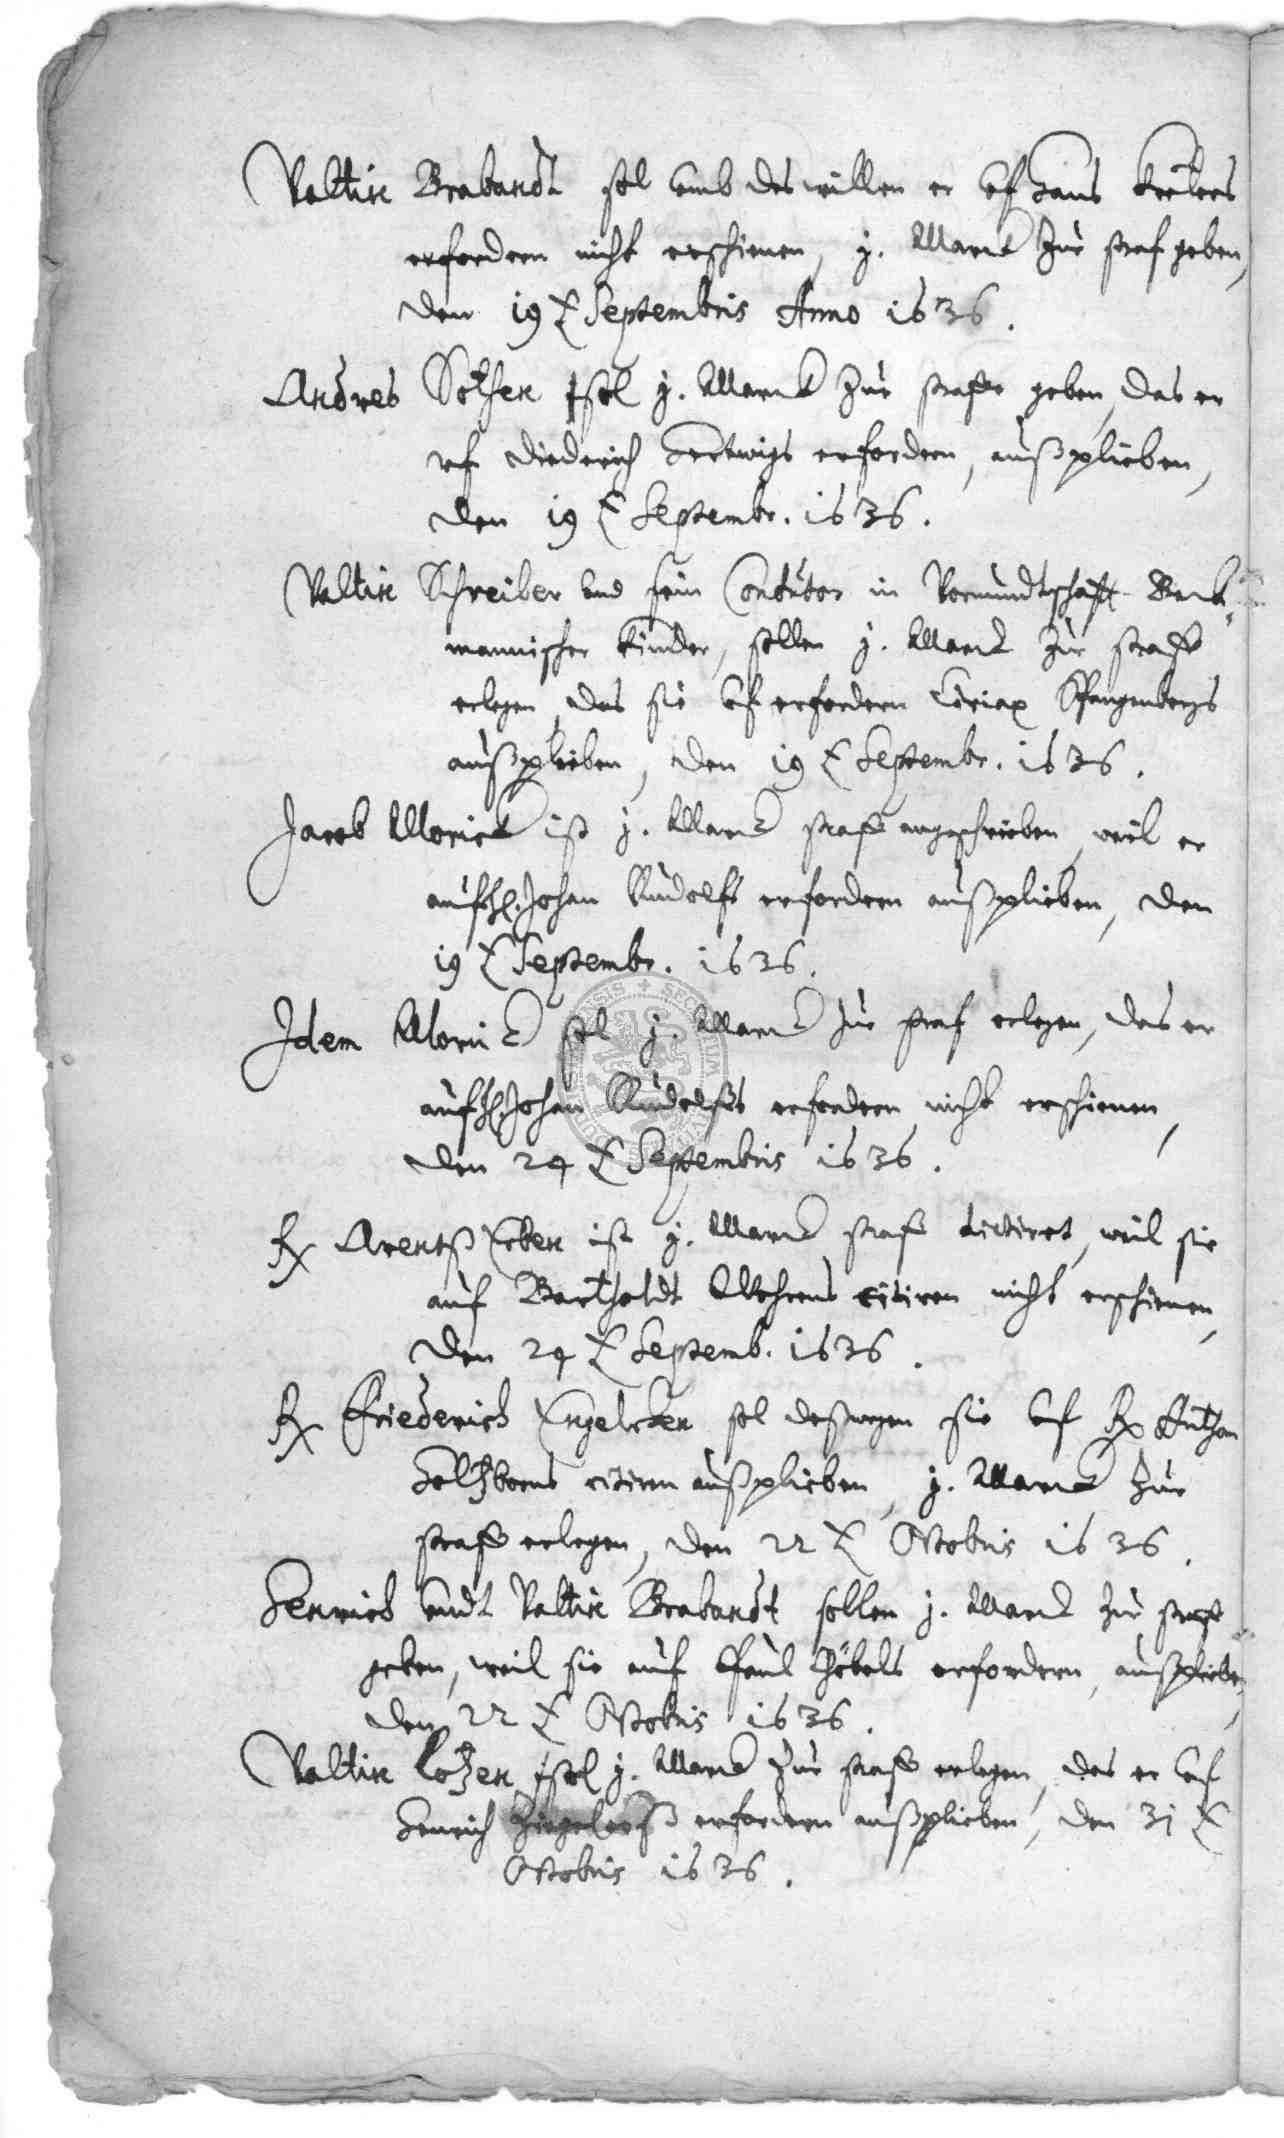 Valtin Brabandt sol umb des willen er uf Hans
erfordern nicht erschienen, j. Marck zur straf geben,
den 19 t Septembris Anno 1636.
Andres sol j. Marck zur strafe geben, das er
uf Diederich Hertwigs erfordern, außplieben,
den 19 t Septembr. 1636.
Valtin Schreiber und sein Contutor in Vormundtschafft
mannischer Kinder, sollen j. Marck zur straffe
erlegen, das sie uf erfordern Ciriax Spangenbergs
außplieben, den 19 t Septembr. 1636.
Jacob Morick ist j. Marck straff angeschrieben, weil er
auf H. Johan Rudolfs erfordern außplieben, den
19 t Septembr. 1636.
Idem Morick sol j. Marck zur straf erlegen, das er
auf H. Johan Rudolfs erfordern nicht erschienen,
den 24 t Septembris 1636.
Arentß Erben ist j. Marck straff dictiret, weil sie
auf Bartholdt citiren nicht erschienen,
den 24 t Septemb. 1636.
Friederich Engelcken sol deßwegen sie uf
citiren außplieben, j. Marck zur
straff erlegen, den 22 t Octobris 1636.
Henrich undt Valtin Brabandt sollen j. Marck zur straff
geben, weil sie auf Paul Göbels erfordern, außplieben,
den 22 t Octobris 1636.
Valtin Lotzen sol j. Marck zur straff erlegen, das er uf
Henrich erfordern außplieben, den 31 t
Octobris 1636.